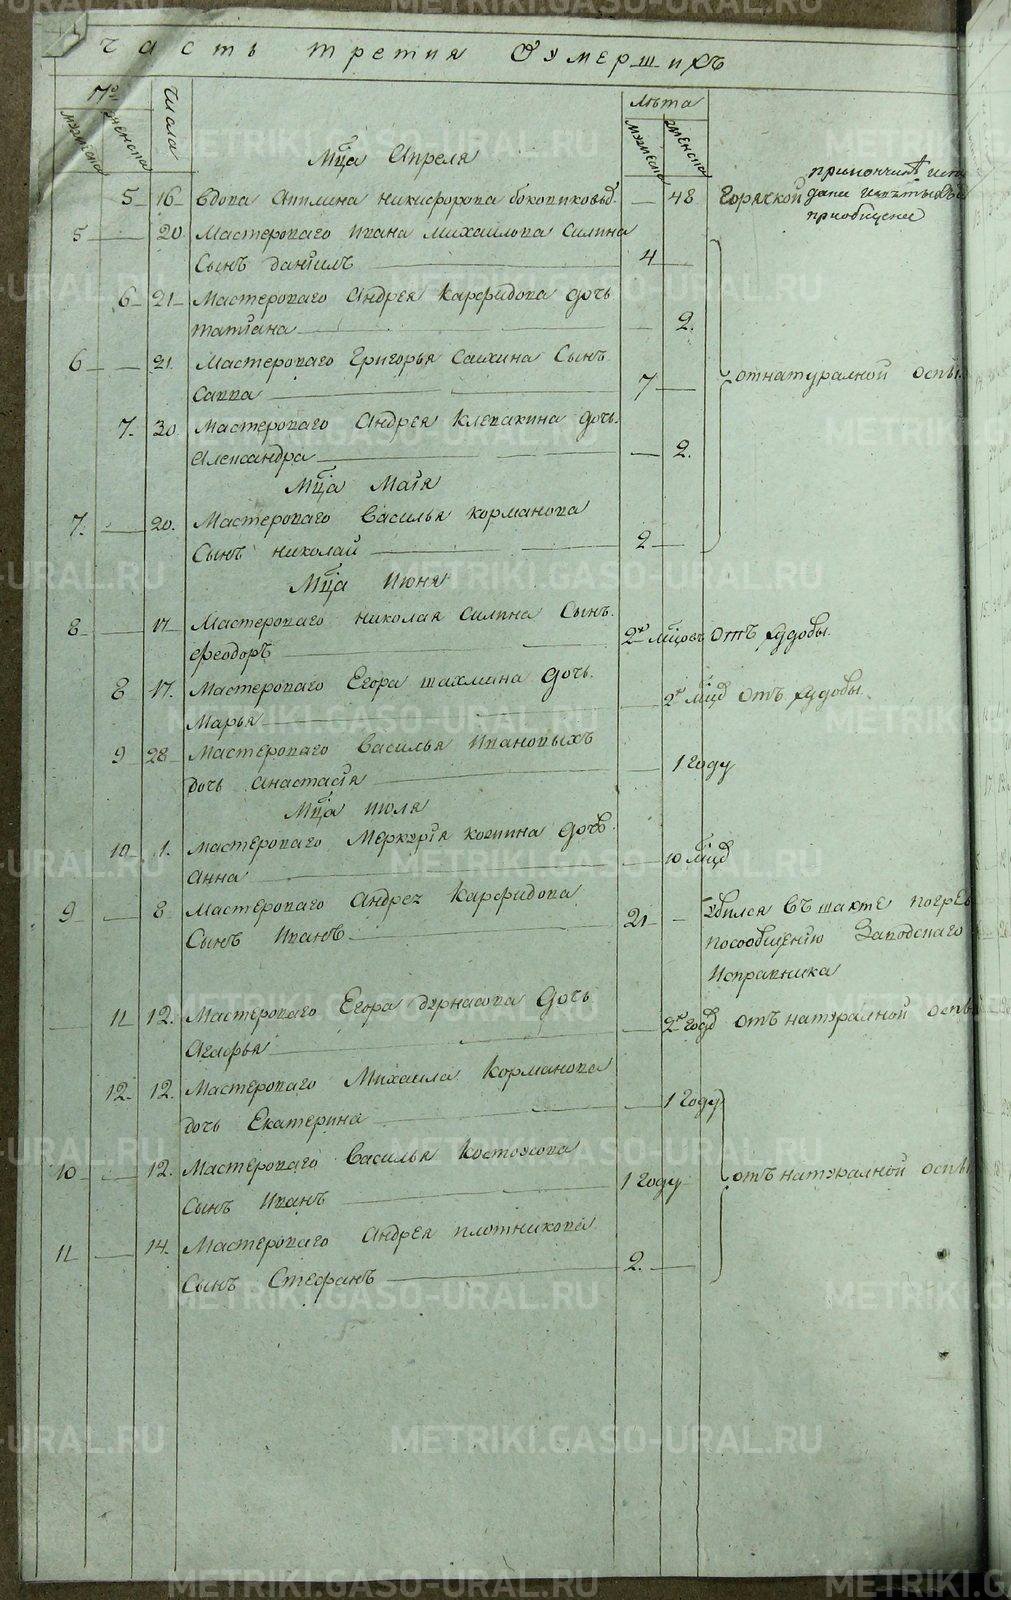 часть третия Оумершихъ
№и числа лѣта
мужеска женска мужеска женска
Мца Апреля
5 16 вдова никифорова — 48 Горячкой
5 — 20 Мастероваго Ивана михаилова Силина
Сынъ данїилъ 4 —
6 21 Мастероваго Андрея Карфидова дочь
татїана — 2.
6 — 21. Мастероваго Григорья Сынъ
Савва 7 — отнатуралной оспы
7. 30 Мастероваго Андрея Клевакина дочь.
александра — 2.
Мца Маїя
7. — 20. Мастероваго василья корманова
Сынъ николай 2 —
Мца июня
8 — 17 Мастероваго николая Силина Сынъ.
феодоръ 2хъ мцовъ отъ худобы.
8 17. Мастероваго Егора шахмина дочь.
Марья — 2х мцъ отъ худобы.
9 28 Мастероваго Василья Ивановыхъ
дочь анастасїя — 1 году
Мца июля
10 1. Мастероваго Меркурїя дочь
анна — 10 мцъ
9 — 8 Мастероваго Андрея Карфидова
Сынъ Иванъ 21 — убился въ шахте погребенъ
посообщенїю Заводскаго
Исправника
11 12. Мастероваго Егора дочь
Агафья — 2х годъ отъ натуралной оспы
12. 12. Мастероваго Михаила Корманова
дочь Екатерина — 1 году
10 — 12. Мастероваго Василья Костоусова
Сынъ Иванъ 1 году отъ натуралной оспы
11 — 14. Мастероваго Андрея плотникова
Сынъ Стефанъ 2. —
METRIKI.GASO-URAL.RU